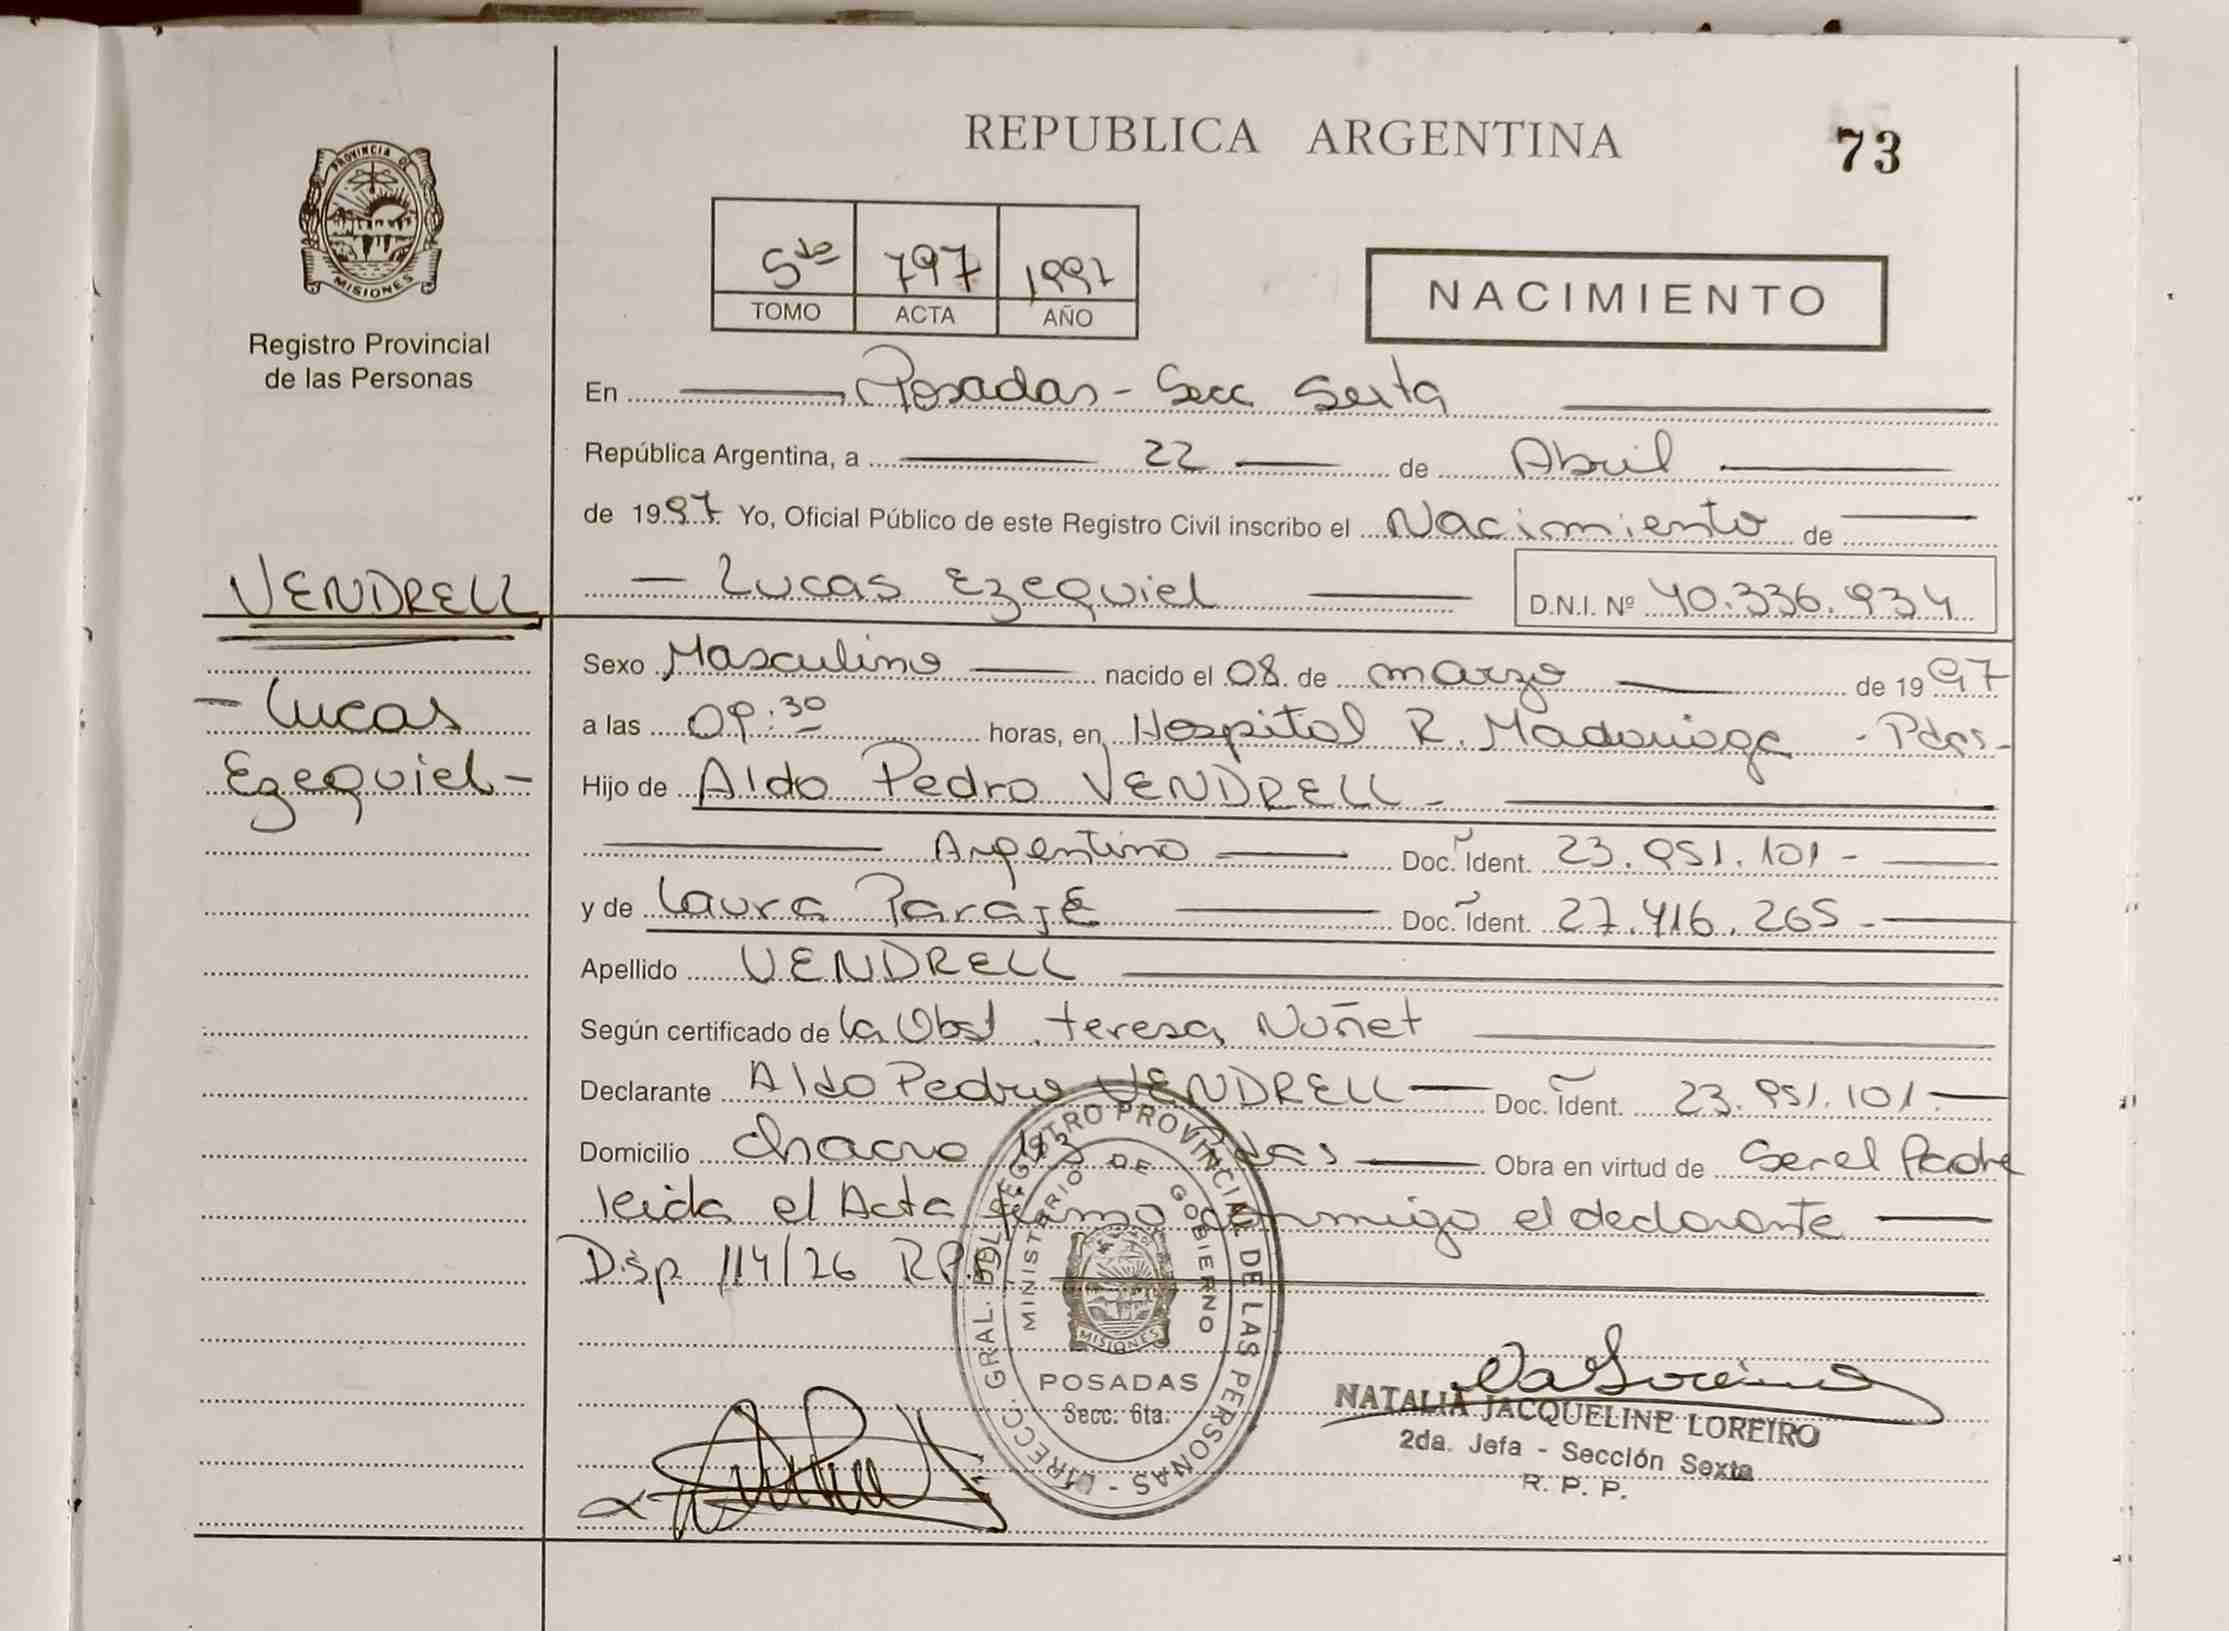 REPUBLICA ARGENTINA
73
PROVINCIA DE
MISIONES
Registro Provincial
de las Personas
5to 797 1997
TOMO ACTA AÑO
NACIMIENTO
En Posadas - Secc Sexta
República Argentina, a 22 de Abril
de 1997. Yo, Oficial Público de este Registro Civil inscribo el Nacimiento de
VENDRELL
- Lucas Ezequiel D.N.I. Nº 40.336.934
Sexo Masculino nacido el 08 de marzo de 1997
- Lucas
a las 09:30 horas, en Hospital R. Madariaga - Pdas -
Ezequiel -
Hijo de Aldo Pedro VENDRELL -
Argentino Doc. Ident. 23.951.101 -
y de Laura Parajé Doc. Ident. 27.416.265 -
Apellido VENDRELL
Según certificado de la Obst. teresa Nuñet
Declarante Aldo Pedro VENDRELL Doc. Ident. 23.951.101.
Domicilio chacra Pdas Obra en virtud de Ser el Padre
leida el Acta firma conmigo el declarante
Disp 114/26 R.P.P.
DIRECC. GRAL. DEL REGISTRO PROVINCIAL DE LAS PERSONAS -
MINISTERIO DE GOBIERNO
MISIONES
POSADAS
Secc. 6ta.
NATALIA JACQUELINE LOREIRO
2da. Jefa - Sección Sexta
R. P. P.